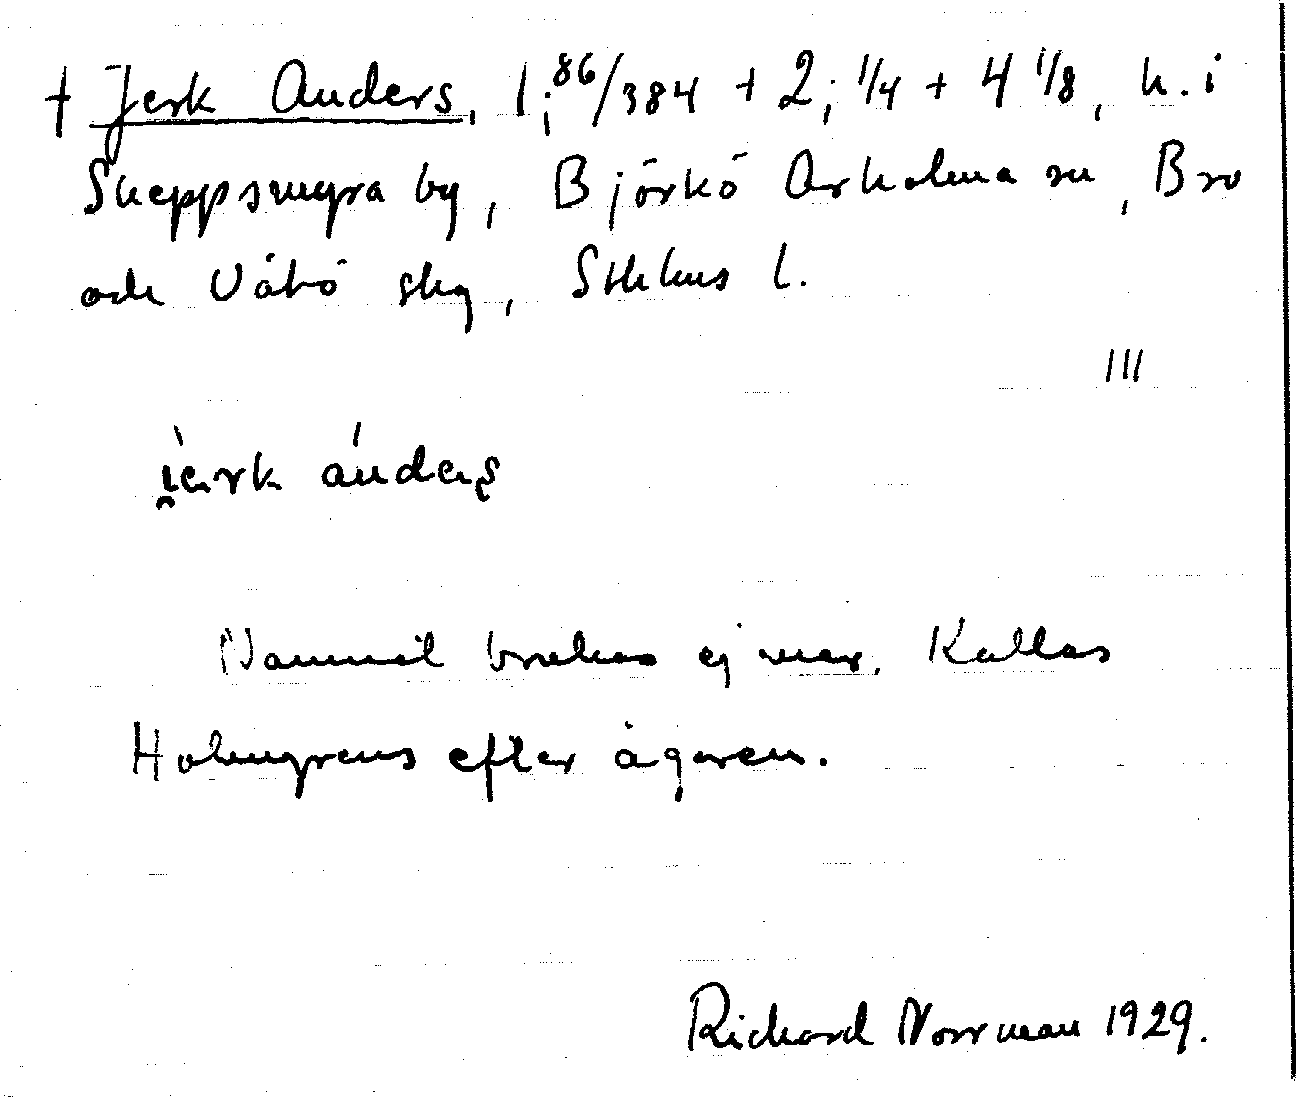 † Jerk Anders, 1;86/384 + 2; 1/4 + 4 1/8, h. i
Skeppsmyra by, Björkö Arholma sn, Bro
och Vätö skg, Sthlms l.
III
i̯èrk ándeʂ
Namnet brukas ej mer. Kallas
Holmgrens efter ägaren.
Richard Norrman 1929.